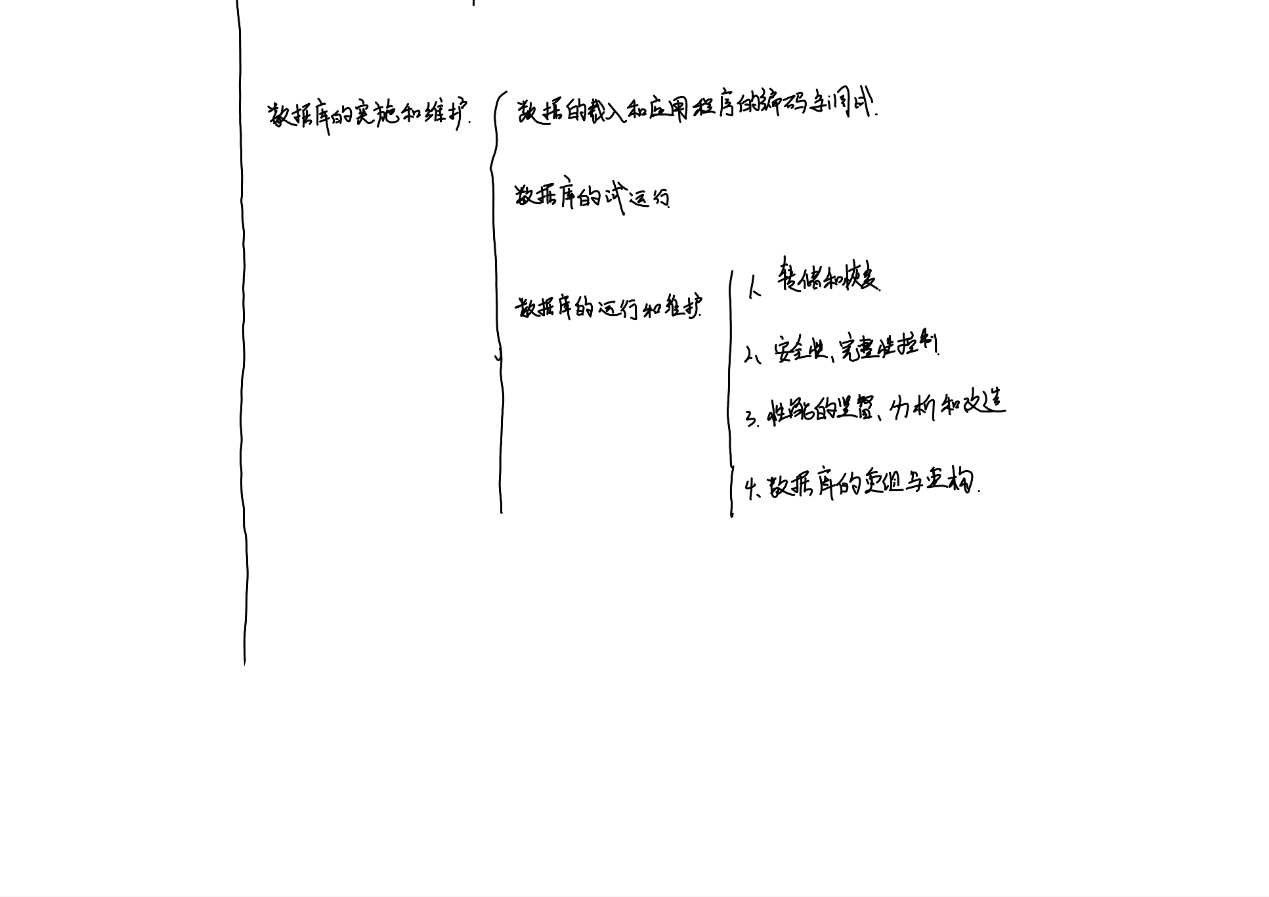 数据库的实施和维护.
数据的载入和应用程序的编码和调试.
数据库的试运行
数据库的运行和维护.
1、转储和恢复
2、安全性、完整性控制
3.性能的监督、分析和改造
4、数据库的重组与重构.